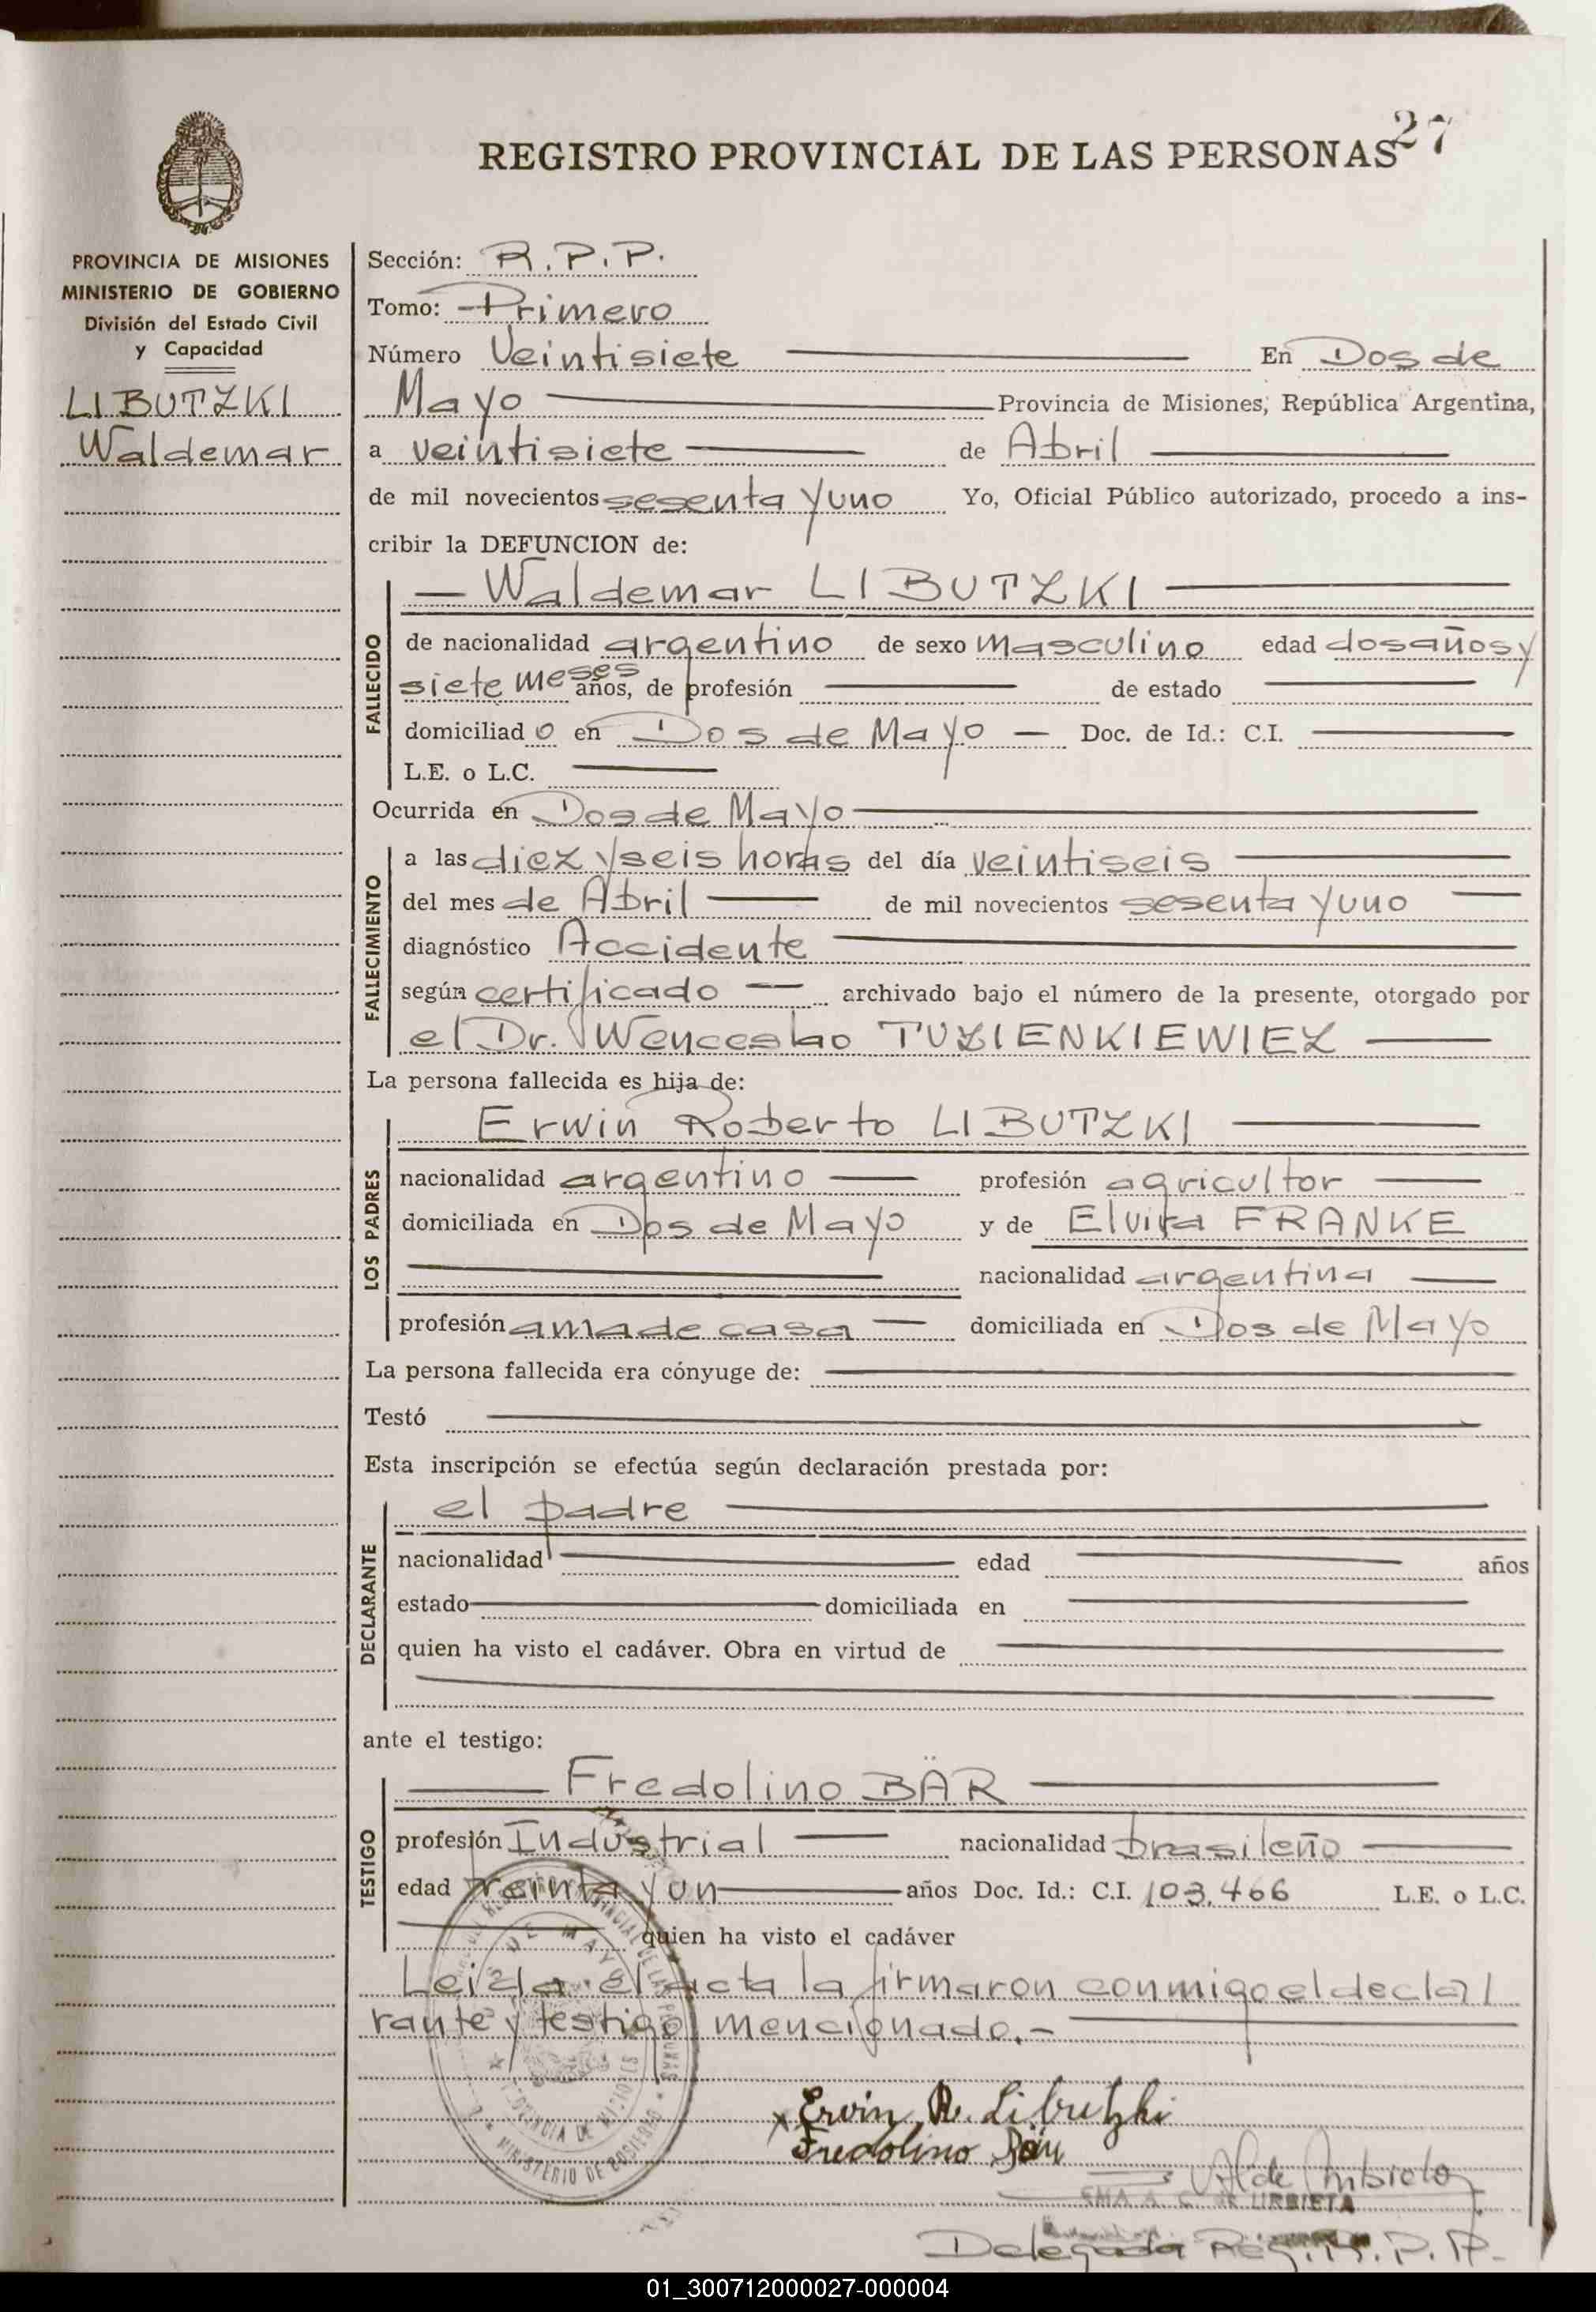 27
REGISTRO PROVINCIAL DE LAS PERSONAS
PROVINCIA DE MISIONES
MINISTERIO DE GOBIERNO
División del Estado Civil
y Capacidad
LIBUTZKI
Waldemar
Sección: R.P.P.
Tomo: Primero
Número Veintisiete En Dos de
Mayo Provincia de Misiones, República Argentina,
a veintisiete de Abril
de mil novecientos sesenta y uno Yo, Oficial Público autorizado, procedo a ins-
cribir la DEFUNCION de:
FALLECIDO
Waldemar LIBUTZKI
de nacionalidad argentino de sexo masculino edad dos años y
siete meses años, de profesión de estado
domiciliado en Dos de Mayo Doc. de Id.: C.I.
L.E. o L.C.
Ocurrida en Dos de Mayo
FALLECIMIENTO
a las diez y seis horas del día veintiseis
del mes de Abril de mil novecientos sesenta y uno
diagnóstico Accidente
según certificado archivado bajo el número de la presente, otorgado por
el Dr. Wenceslao TUZIENKIEWIEZ
La persona fallecida es hija de:
LOS PADRES
Erwin Roberto LIBUTZKI
nacionalidad argentino profesión agricultor
domiciliada en Dos de Mayo y de Elvira FRANKE
nacionalidad argentina
profesión ama de casa domiciliada en Dos de Mayo
La persona fallecida era cónyuge de:
Testó
Esta inscripción se efectúa según declaración prestada por:
DECLARANTE
el padre
nacionalidad edad años
estado domiciliada en
quien ha visto el cadáver. Obra en virtud de
ante el testigo:
TESTIGO
Fredolino BÄR
profesión Industrial nacionalidad brasileño
edad treinta y un años Doc. Id.: C.I. 103.466 L.E. o L.C.
quien ha visto el cadáver
Leida el acta la firmaron conmigo el decla
rante y testigo mencionado.-
Ervin R. Libutzki
Fredolino Bär
URBIETA
Delegada Reg. P. P.
PROVINCIA DE MISIONES
MINISTERIO DE GOBIERNO
01_300712000027-000004